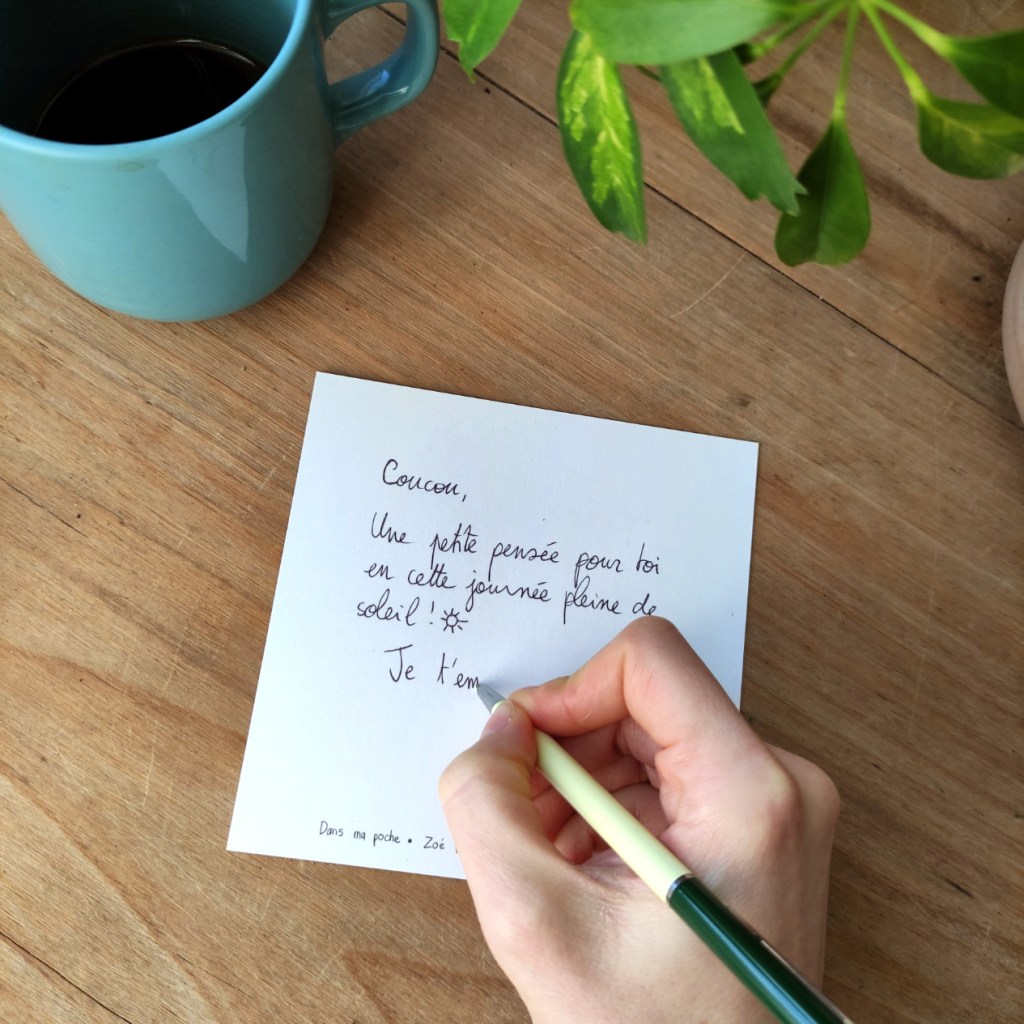 Coucou,
Une petite pensée pour toi
en cette journée pleine de
soleil !
Je t'em
Dans ma poche • Zoé